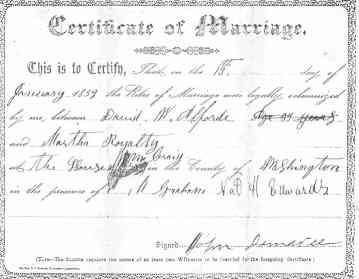 Certificate of Marriage.
This is to Certify, That on the 13 day of
January 1859 the Rites of Marriage was legally solemnized
by me between David W. Alforde Age 39 Years
and Martha Royalty
at the House Craig in the County of Washington
in the presence of Graham Nat H Edwards
Signed John
(Note.—The Statute requires the names of at least two Witnesses to be inserted in the foregoing Certificate.)